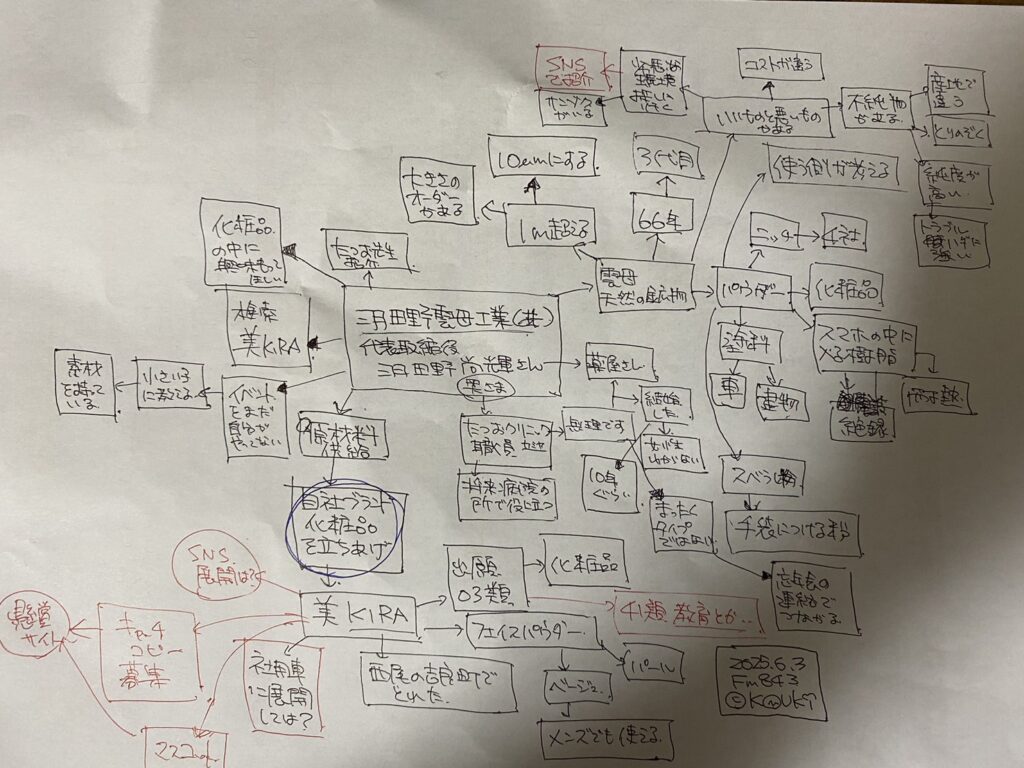 SNS
で紹介
コストが違う
いいものと悪いもの
がある
不純物
がある
産地で
違う
とりのぞく
純度が
高い
トラブル
強い
10umにする
3代目
使う側が考える
大きさの
オーダー
がある
1m超える
66年
ニッチ
4社
化粧品
の中に
興味もって
ほしい
たつお先生
紹介
雲母
天然の鉱物
パウダー
化粧品
三月田野雲母工業(株)
代表取締役
三月田野 尚光輝さん
検索
美KIRA
塗料
車
建物
スマホの中に
入る樹脂
絶縁
素材
を募って
いる
小さい子
に
イベント
をまだ
自分が
やってない
原材料
供給
薬屋さん
結婚
した
たつおクリニック
職員
無理です
10年
ぐらい
将来病院の
所で役に立つ
まったく
タイプ
ではない
スベリ粉
手袋につける粉
自社ブランド
化粧品
を立ちあげ
忘年会の
連絡で
つながる
SNS
展開は?
美KIRA
出願
03類
化粧品
41類 教育とか..
フェイスパウダー
パール
ベージュ
メンズでも使える
西尾の吉良町で
とれた
社用車
に展開
しては?
コピー
募集
サイト
2025.6.3
Fm843
©KOUKI